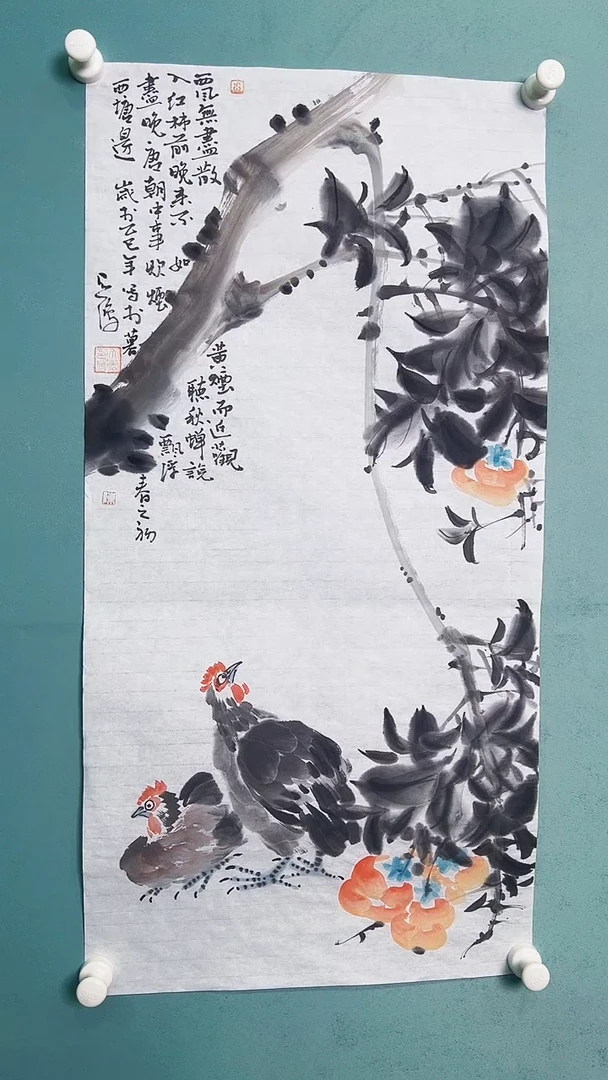 西風無盡散
入红柿前晚来不如
盡晚唐朝中事煙
西塘邊 歲於乙巳年寫於暮
春之初
黄煙而近觀
聽秋蟬說
飄浮